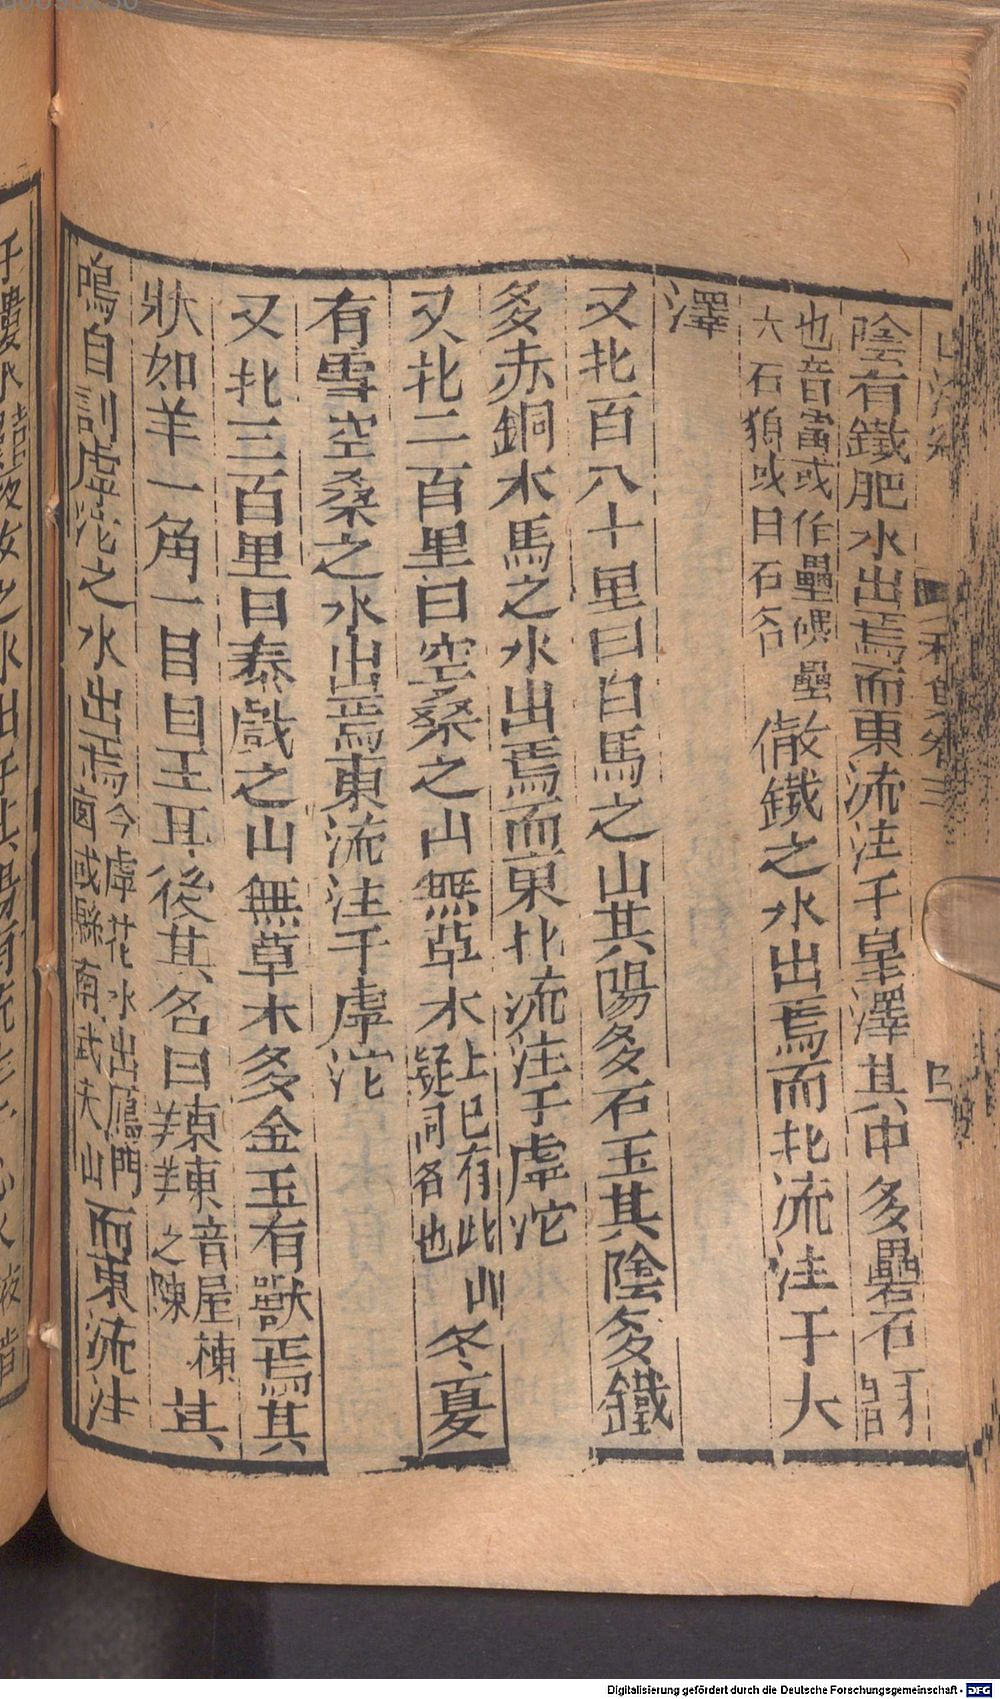 陰有鐵肥水出焉而東流注于皋澤其中多礨石
也音雷或作壘磈壘
大石狼或曰石名
敞鐵之水出焉而北流注于大
澤
又北百八十里曰白馬之山其陽多石玉其陰多鐵
多赤銅木馬之水出焉而東北流注于虖沱
又北二百里曰空桑之山無草木
上已有此山
疑同名也
冬夏
有雪空桑之水出焉東流注于虖沱
又北三百里曰泰戲之山無草木多金玉有獸焉其
狀如羊一角一目目在耳後其名曰䍶䍶
音屋棟
之陳
其
鳴自訓虖沱之水出焉
今虖沱水出鴈門
鹵城縣南武夫山
而東流注
Digitalisierung gefördert durch die Deutsche Forschungsgemeinschaft - DFG